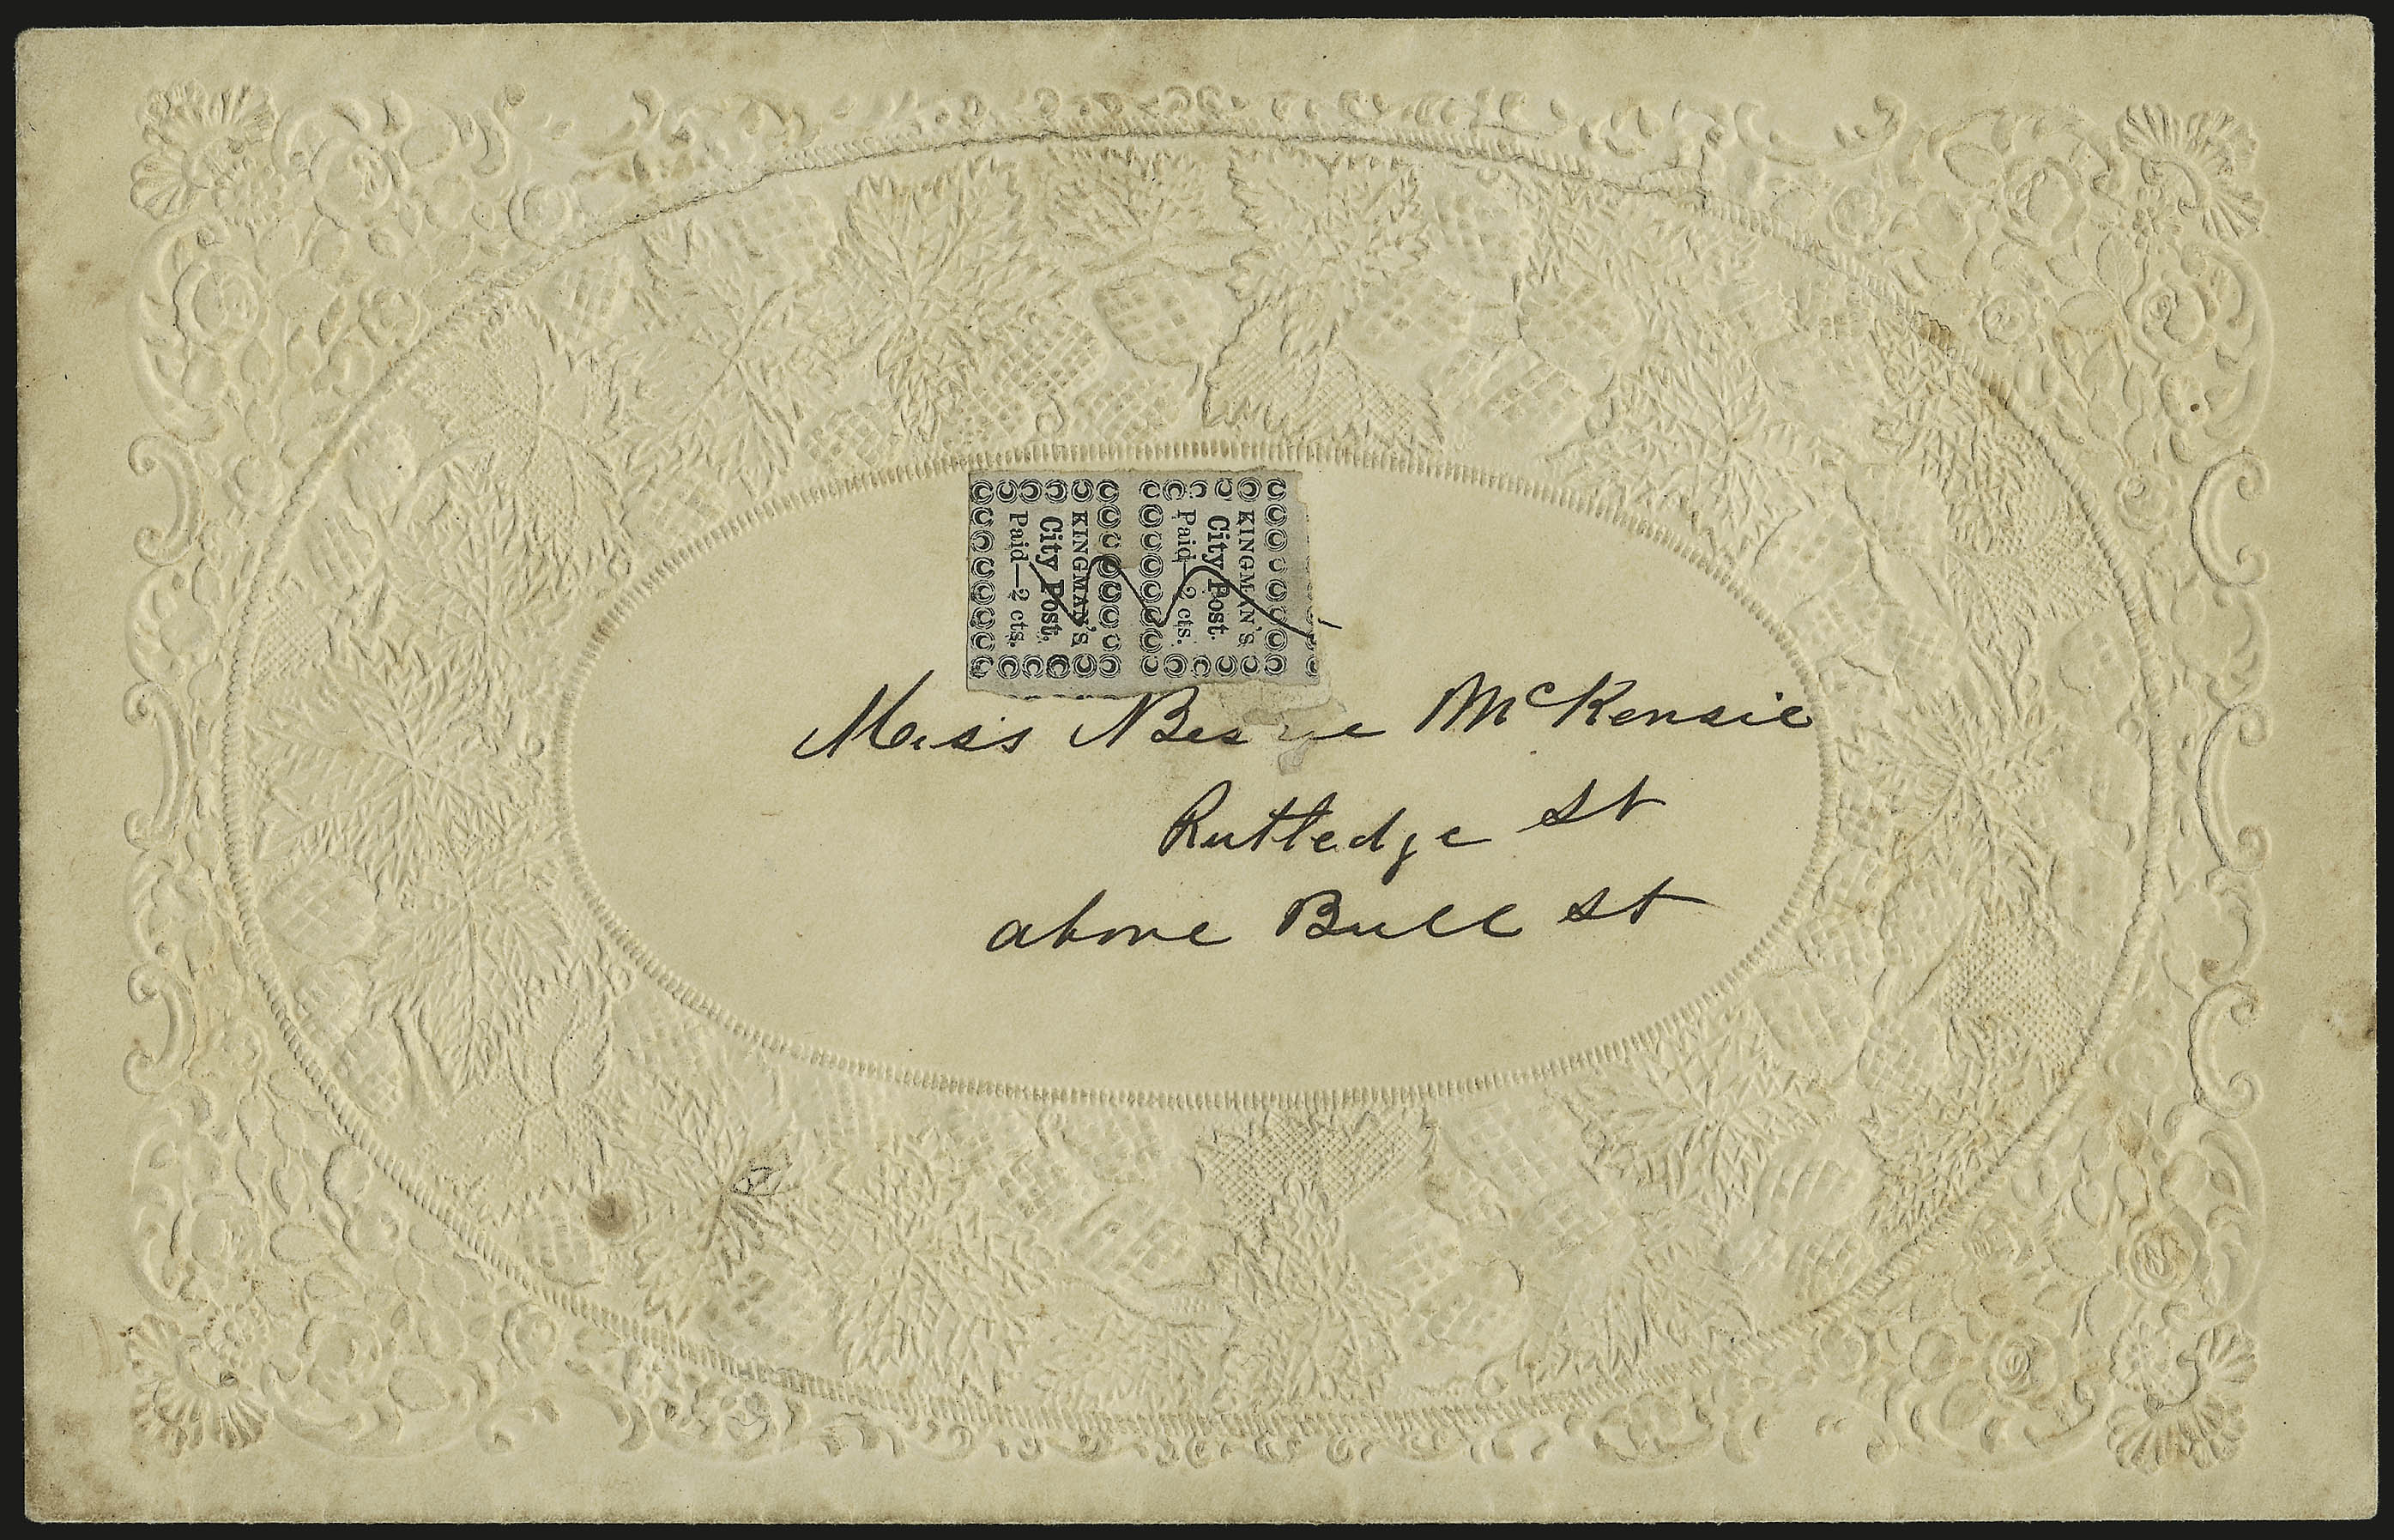 KINGMAN'S
City Post,
Paid—2 cts.
KINGMAN'S
City Post.
Paid—2 cts.
Miss McKensie
Rutledge St
above Bull St